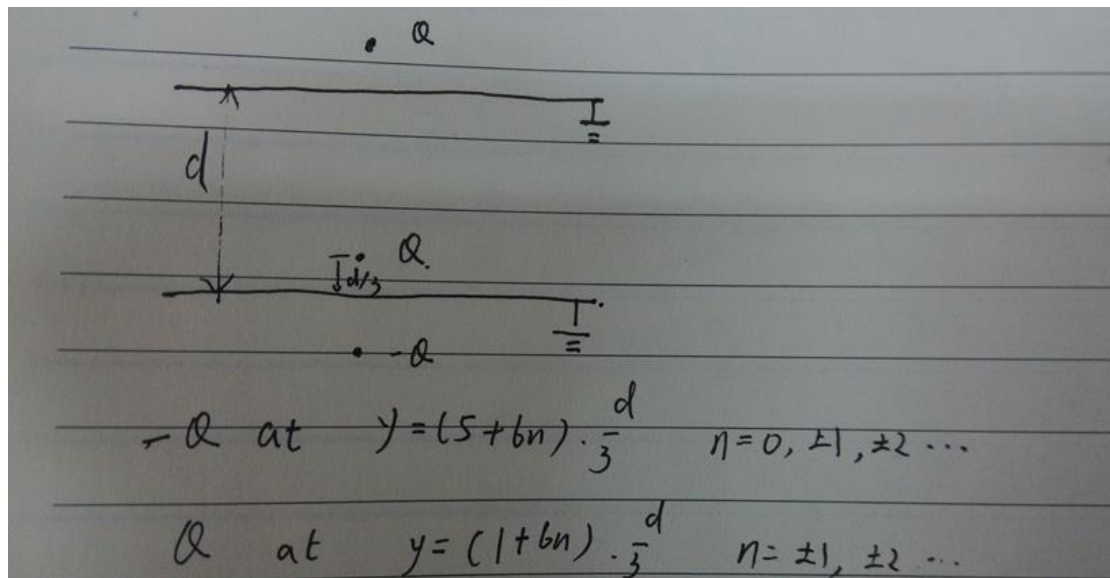 Q
d
Q.
d/3
-Q
-Q at y=(5+6n)·d/3 n=0, ±1, ±2 ...
Q at y=(1+6n)·d/3 n= ±1, ±2 ...